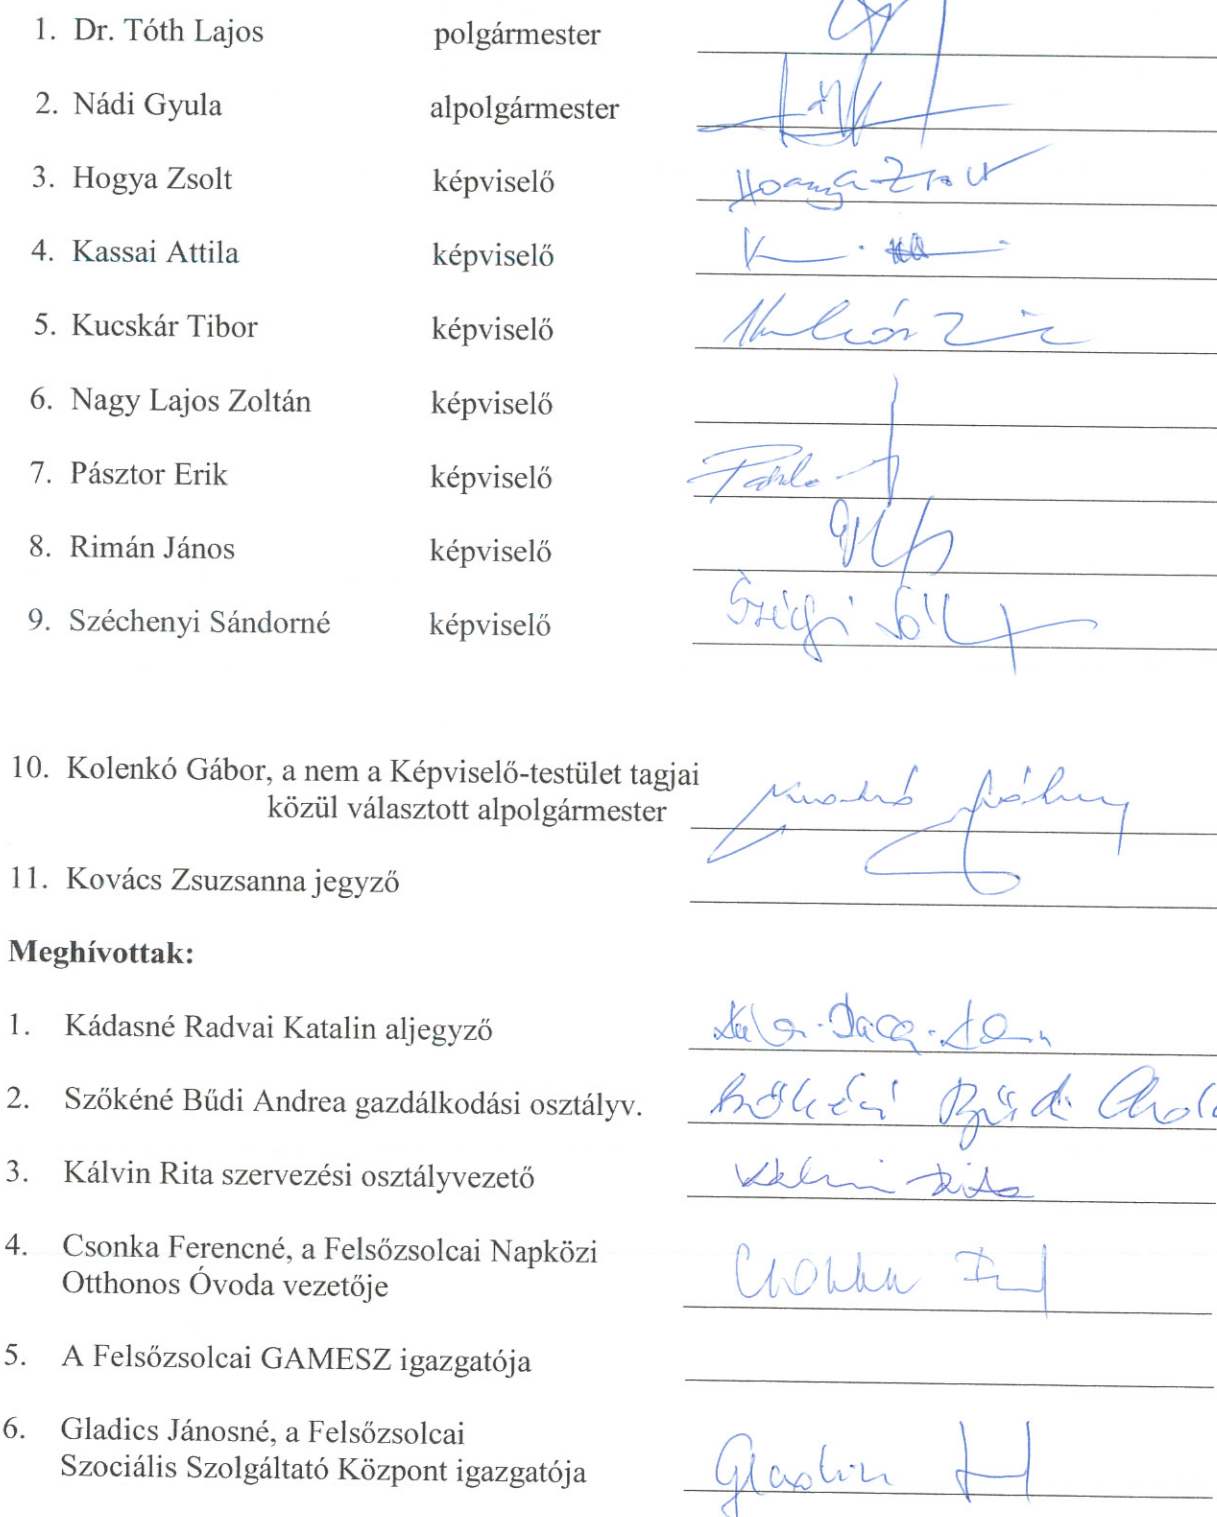 1. Dr. Tóth Lajos polgármester
2. Nádi Gyula alpolgármester
3. Hogya Zsolt képviselő
4. Kassai Attila képviselő
5. Kucskár Tibor képviselő
6. Nagy Lajos Zoltán képviselő
7. Pásztor Erik képviselő
8. Rimán János képviselő
9. Széchenyi Sándorné képviselő
10. Kolenkó Gábor, a nem a Képviselő-testület tagjai
közül választott alpolgármester
11. Kovács Zsuzsanna jegyző
Meghívottak:
1. Kádasné Radvai Katalin aljegyző
2. Szőkéné Bűdi Andrea gazdálkodási osztályv.
3. Kálvin Rita szervezési osztályvezető
4. Csonka Ferencné, a Felsőzsolcai Napközi
Otthonos Óvoda vezetője
5. A Felsőzsolcai GAMESZ igazgatója
6. Gladics Jánosné, a Felsőzsolcai
Szociális Szolgáltató Központ igazgatója